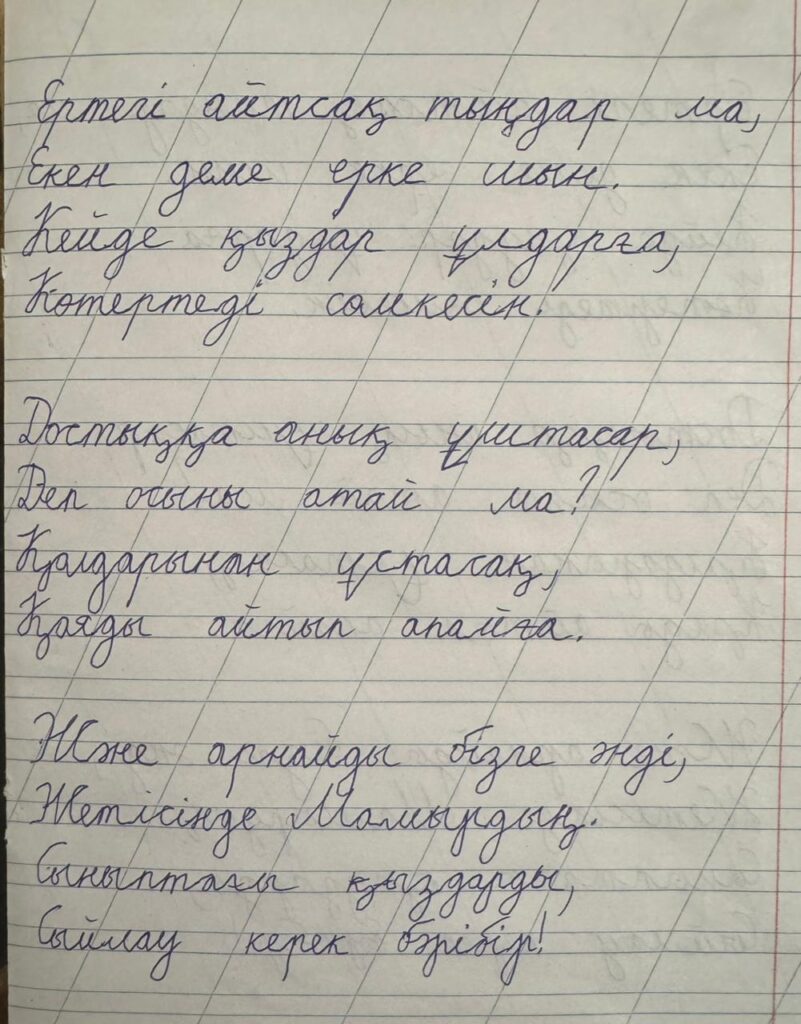 Ертегі айтсақ тыңдар ма,
Екен деме ерке шын.
Кейде қыздар ұлдарға,
Көтертеді сөмкесін.
Достыққа анық ұштасар,
Деп осыны атай ма?
Қолдарынан ұстасақ,
Қояды айтып апайға.
Және арнайды бізге әнді,
Жетісінде Мамырдың.
Сыныптағы қыздарды,
Сыйлау керек бәрібір!